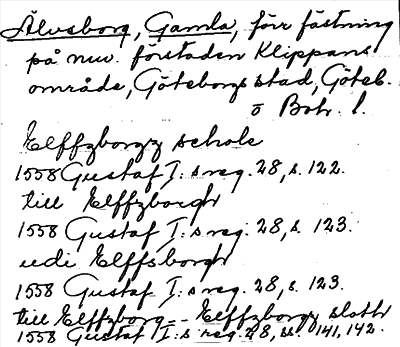 Älvsborg, Gamla, förr fästning
på nuv. förstaden Klippans
område, Göteborgs stad, Göteb.
o Boh. l.
Elffzborgz schole
1558 Gustaf I:s reg. 28, s. 122.
till Elffzborgh
1558 Gustaf I:s reg. 28, s. 123.
udi Elffsborgh
1558 Gustaf I:s reg. 28, s. 123.
till Elffzborg -- Elffzborgz slothr
1558 Gustaf I:s reg. 28, ss. 141, 142.